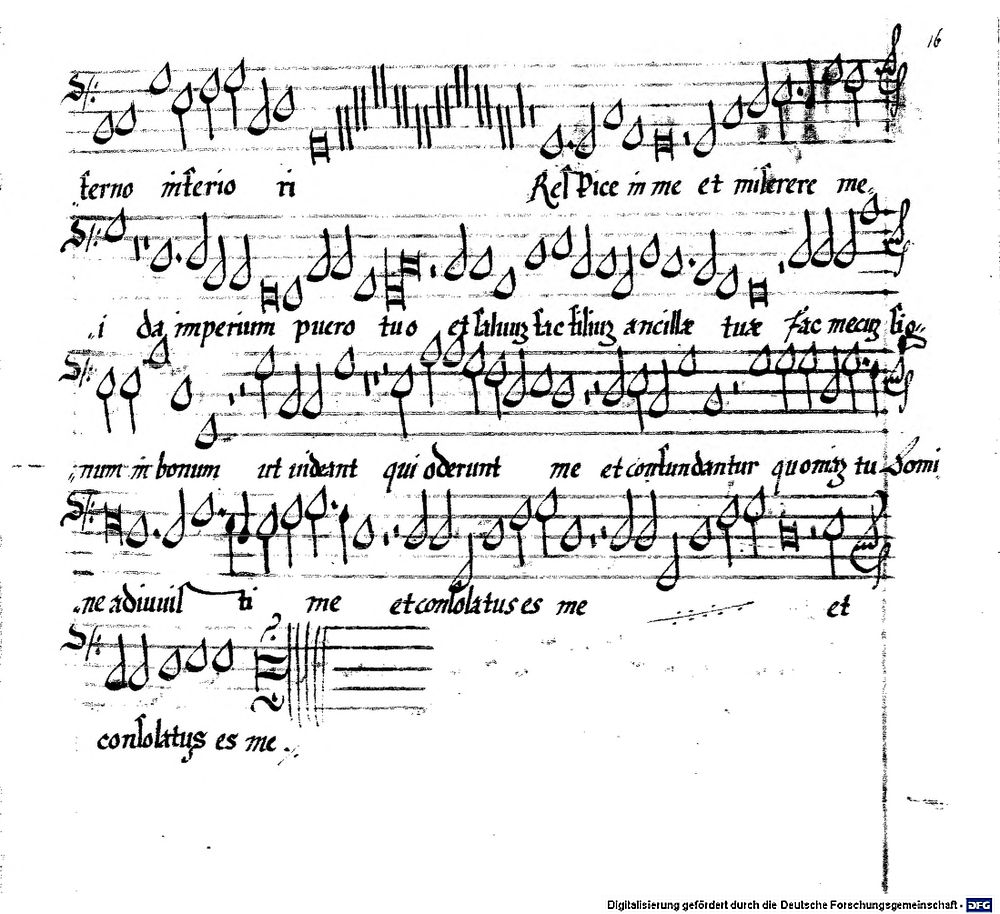 16
ferno inferio ri Respice in me et miserere me
i da imperium puero tuo et saluuʒ fac filiuʒ ancillæ tuæ fac mecuʒ sig
num in bonum ut uideant qui oderunt me et confundantur quoniaʒ tu Domi
ne adiuuis ti me et consolatus es me et
consolatus es me
Digitalisierung gefördert durch die Deutsche Forschungsgemeinschaft - DFG